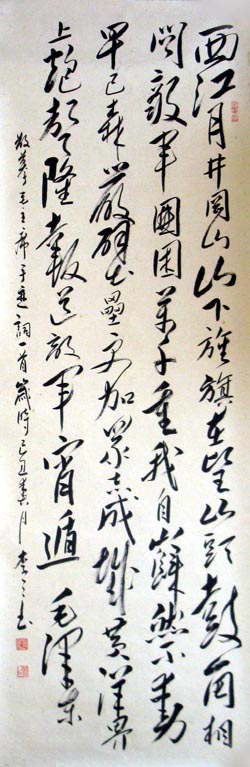 西江月井冈山山下旌旗在望山头鼓角相
闻敌军围困万千重我自岿然不动
早已森严壁垒更加众志成城黄洋界
上炮声隆报道敌军宵遁 毛泽东
敬摹毛主席手迹词一首岁时己丑 月 李 书